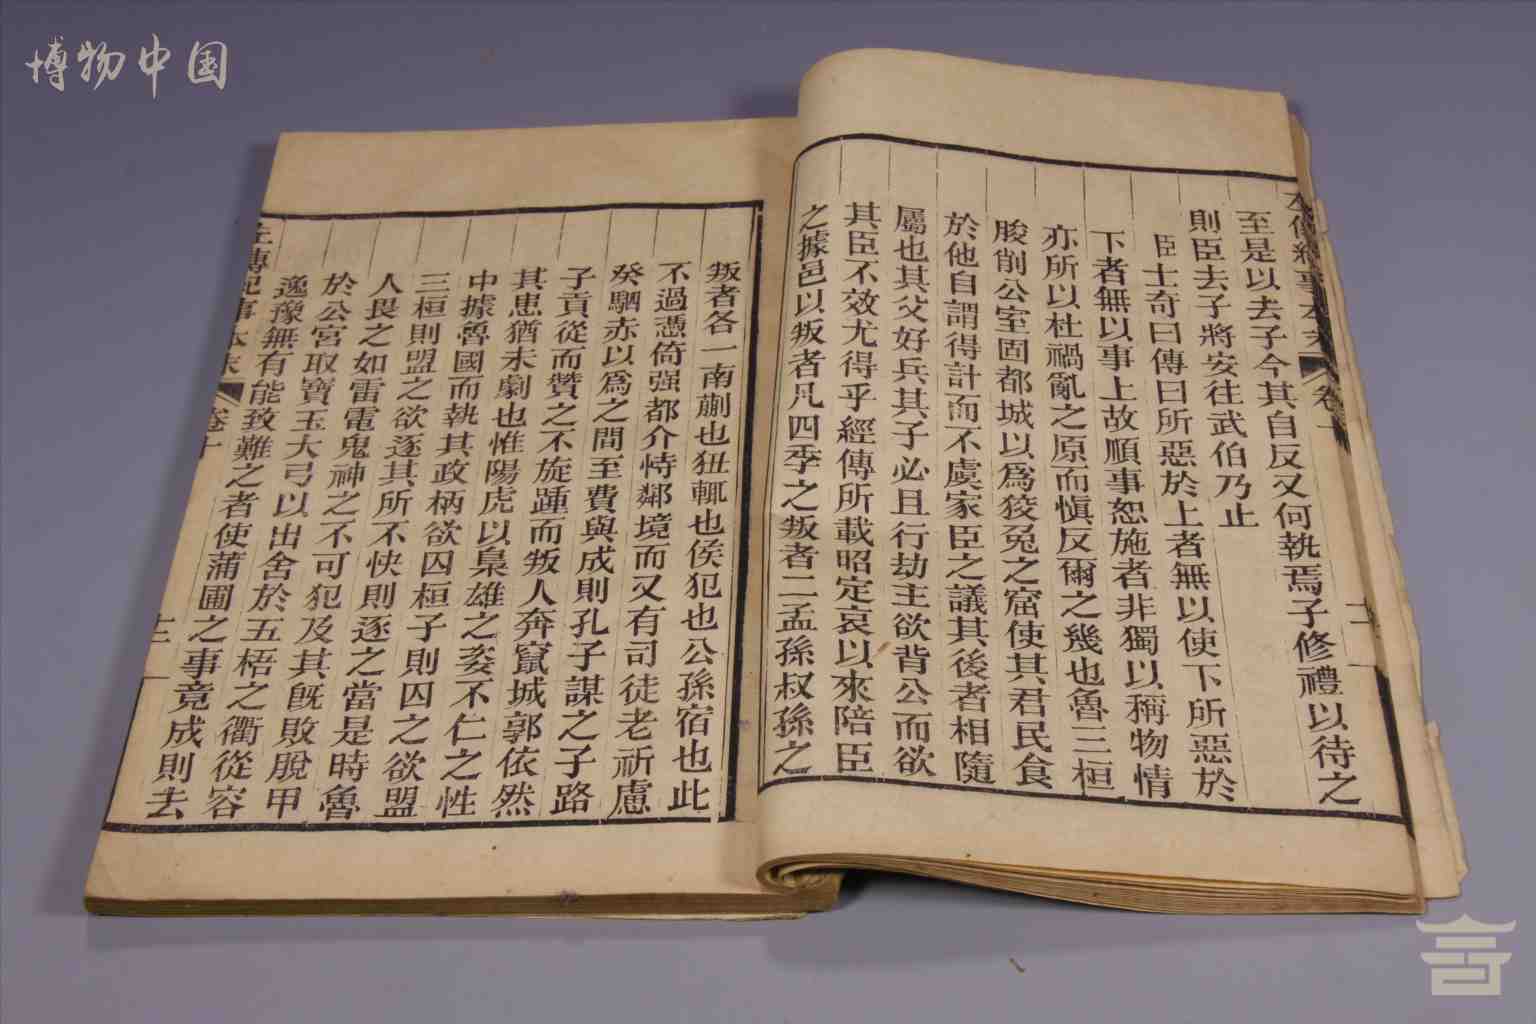 博物中国
至是以去子今其自反又何執焉子修禮以待之
則臣去子將安往武伯乃止
臣士奇曰傳曰所惡於上者無以使下所惡於
下者無以事上故順事恕施者非獨以稱物情
亦所以杜禍亂之原而愼反爾之幾也魯三桓
朘削公室固都城以爲狡兔之窟使其君民食
於他自謂得計而不虞家臣之議其後者相隨
屬也其父好兵其子必且行劫主欲背公而欲
其臣不效尤得乎經傳所載昭定哀以來陪臣
之據邑以叛者凡四季之叛者二孟孫叔孫之
叛者各一南蒯也狃輒也侯犯也公孫宿也此
不過憑倚强都介恃鄰境而又有司徒老祈慮
癸駟赤以爲之間至費與成則孔子謀之子路
子貢從而贊之不旋踵而叛人奔竄城郭依然
其患猶未劇也惟陽虎以梟雄之姿不仁之性
中據魯國而執其政柄欲囚桓子則囚之欲盟
三桓則盟之欲逐其所不快則逐之當是時魯
人畏之如雷電鬼神之不可犯及其旣敗脫甲
於公宮取寶玉大弓以出舍於五梧之衢從容
逸豫無有能致難之者使蒲圃之事竟成則去
左傳紀事本末 卷十 十二